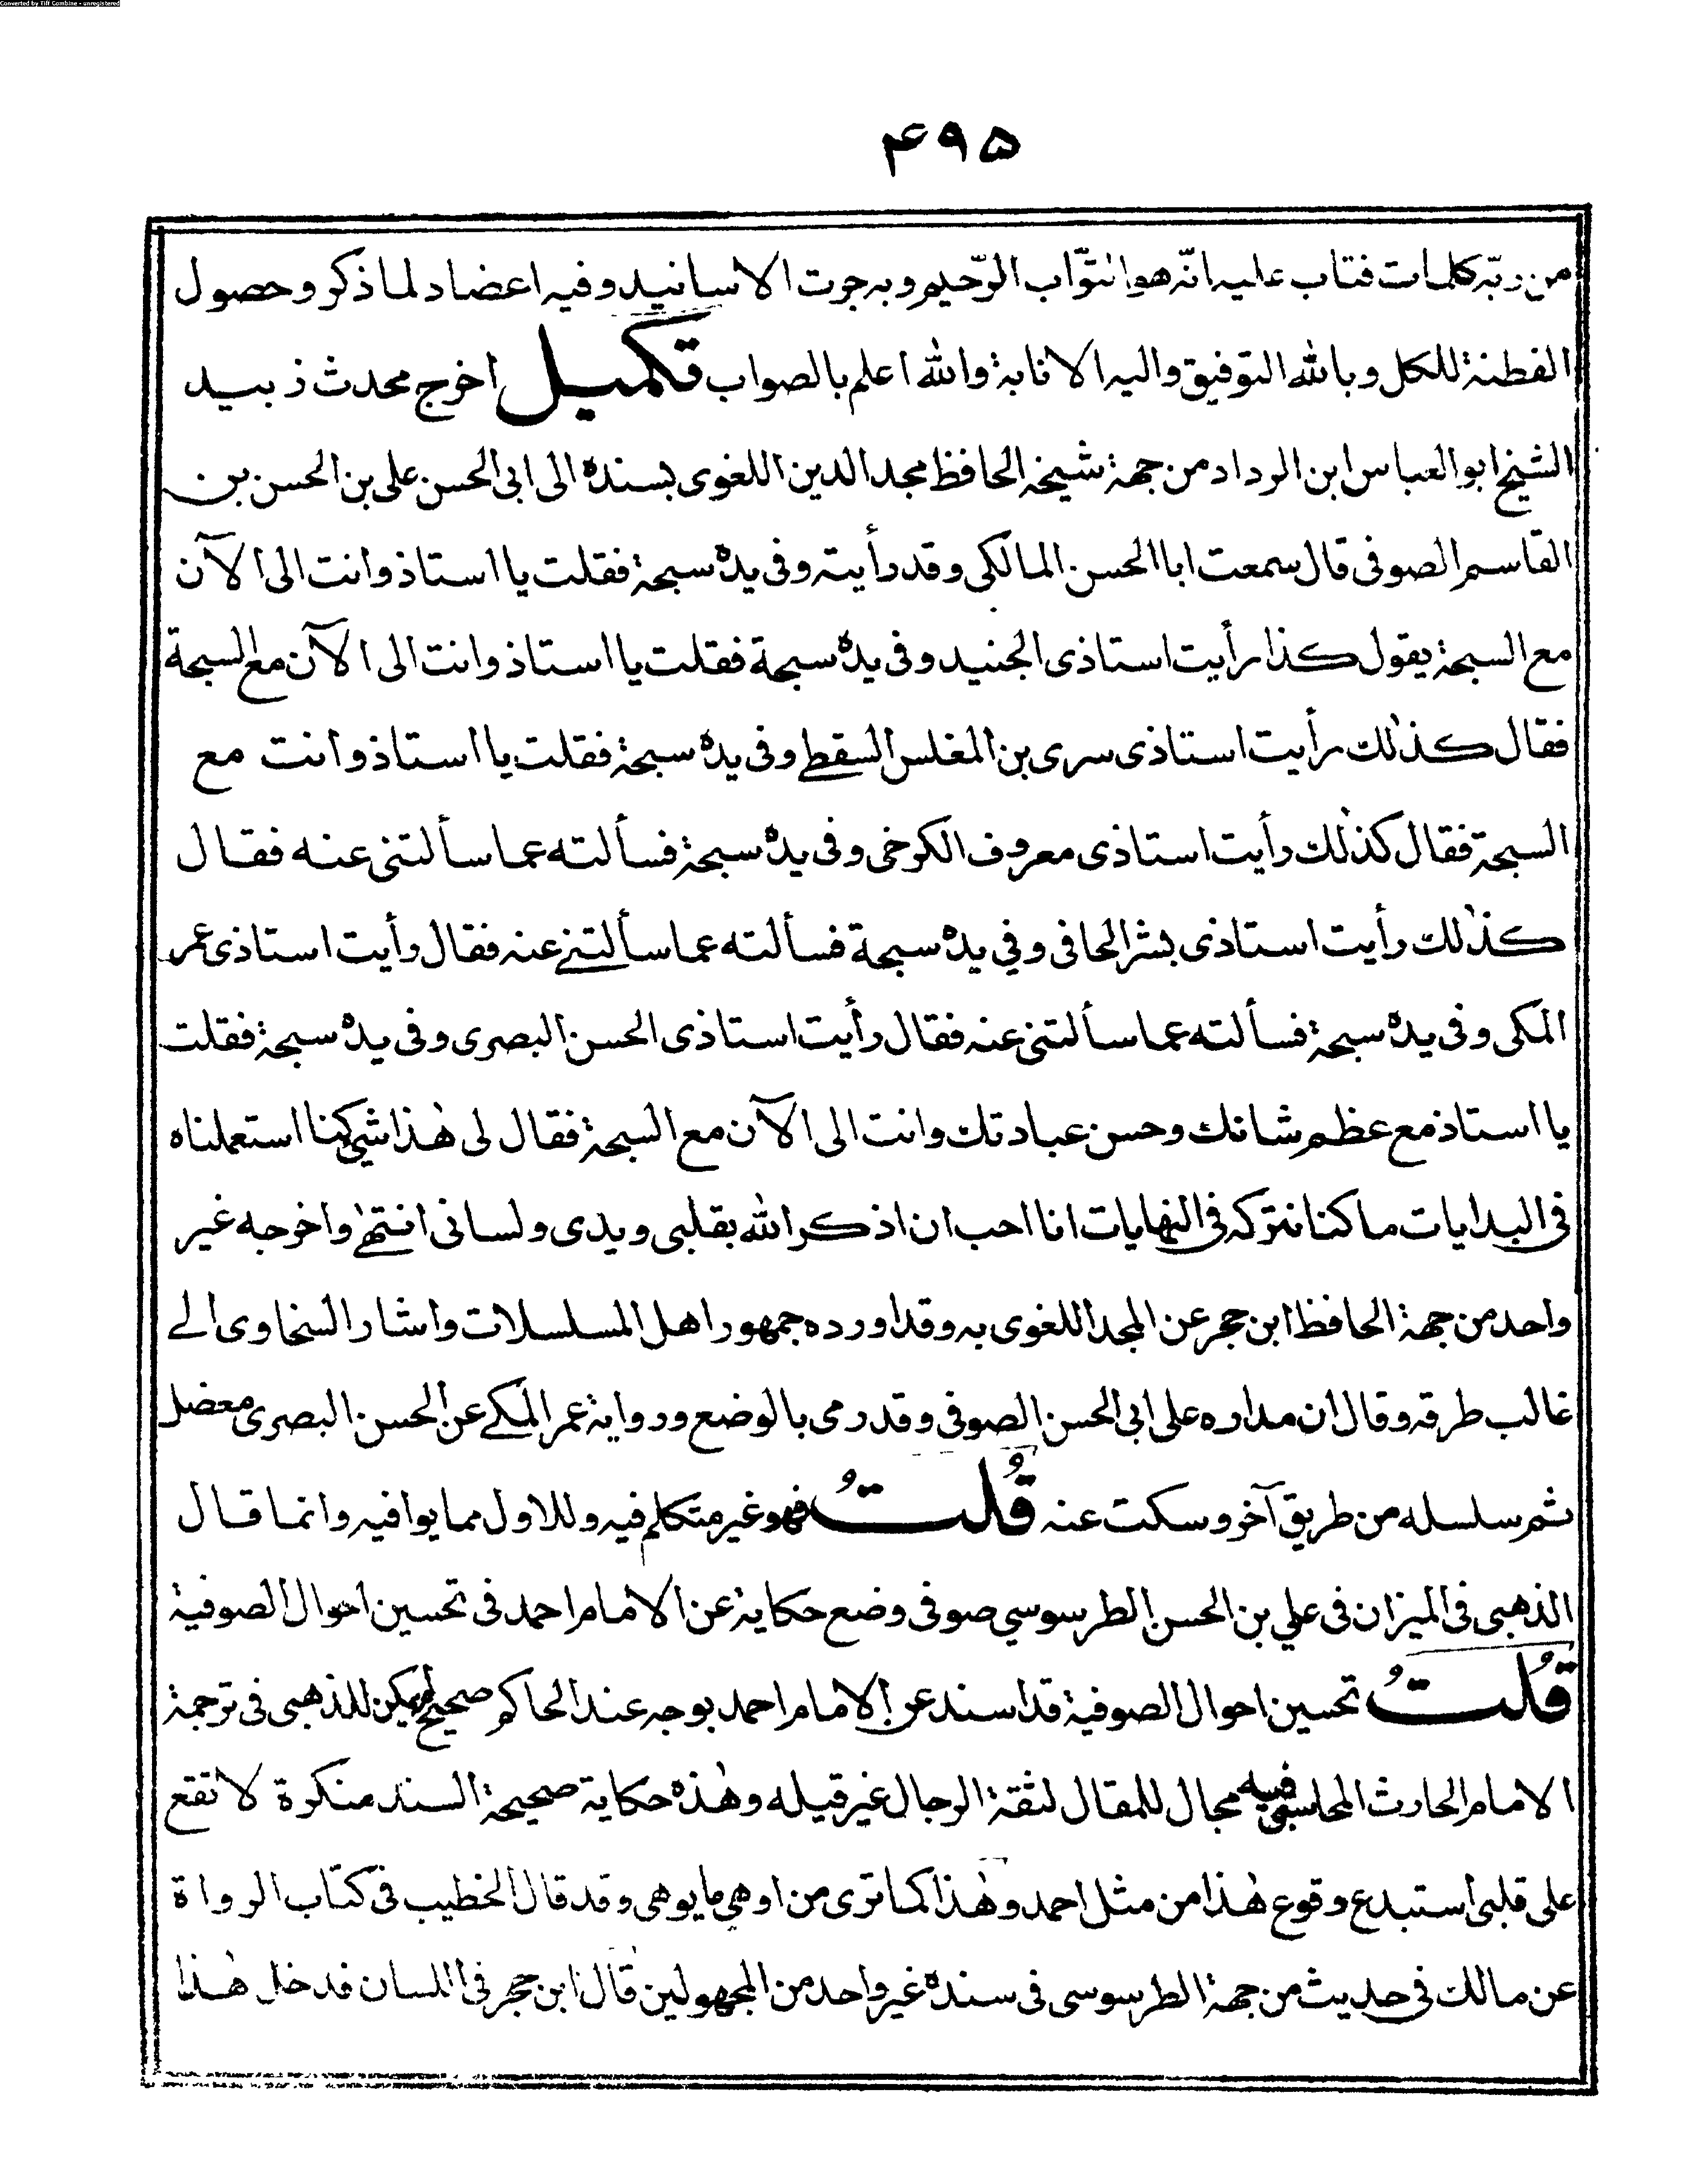 Converted by Tiff Combine - unregistered
۴۹۵
من ربّه كلمات فتاب عليه انّه هو التوّاب الرّحيم وبه جرت الاسانيد وفيه اعضاد لما ذكر وحصول
الفطنة للكل وبالله التوفيق واليه الانابة والله اعلم بالصواب تكميل اخرج محدث زبيد
الشيخ ابو العباس ابن الرداد من جهة شيخه الحافظ مجد الدين اللغوى بسنده الى ابى الحسن على بن الحسن بن
القاسم الصوفى قال سمعت ابا الحسن المالكى وقد رأيته وفى يده سبحة فقلت يا استاذ وانت الى الآن
مع السبحة يقول كذا رأيت استاذى الجنيد وفى يده سبحة فقلت يا استاذ وانت الى الآن مع السبحة
فقال كذلك رأيت استاذى سرى بن المغلس السقطے وفى يده سبحة فقلت يا استاذ وانت مع
السبحة فقال كذلك رأيت استاذى معروف الكرخى وفى يده سبحة فسألته عما سألتنى عنه فقال
كذلك رأيت استاذى بشر الحافى وفي يده سبحة فسألته عما سألتنے عنه فقال رأيت استاذى عمر
المكى وفى يده سبحة فسألته عما سألتنى عنه فقال رأيت استاذى الحسن البصرى وفى يده سبحة فقلت
يا استاذ مع عظم شانك وحسن عبادتك وانت الى الآن مع السبحة فقال لى هٰذا شي كنا استعملناه
فى البدايات ما كنا نتركه فى النهايات انا احب ان اذكر الله بقلبى ويدى ولسانى انتهٰے واخرجه غير
واحد من جهة الحافظ ابن حجر عن المجد اللغوى به وقد اورده جمهور اهل المسلسلات واشار السخاوى الے
غالب طرقه وقال ان مداره على ابى الحسن الصوفى وقد رمى بالوضع ورواية عمر المكے عن الحسن البصرى معضل
ثم سلسله من طريق آخر وسكت عنه قُلتُ فهو غير متكلم فيه وللاول مما يوافيه وانما قال
الذهبى فى الميزان فى علي بن الحسن الطرسوسي صوفى وضع حكاية عن الامام احمد فى تحسين احوال الصوفية
قُلتُ تحسين احوال الصوفية قد اسند عن الامام احمد بوجه عند الحاكم صحيح لم يكن للذهبى فى ترجمة
الامام الحارث المحاسبى فيه مجال للمقال لثقة الرجال غير قيله وهٰذه حكاية صحيحة السند منكرة لا تقع
على قلبى استبدع وقوع هٰذا من مثل احمد وهٰذا كما ترى من اوهى ما يوهى وقد قال الخطيب فى كتاب الرواة
عن مالك فى حديث من جهة الطرسوسى فى سنده غير واحد من المجهولين قال ابن حجر فى اللسان قد خل هٰذا